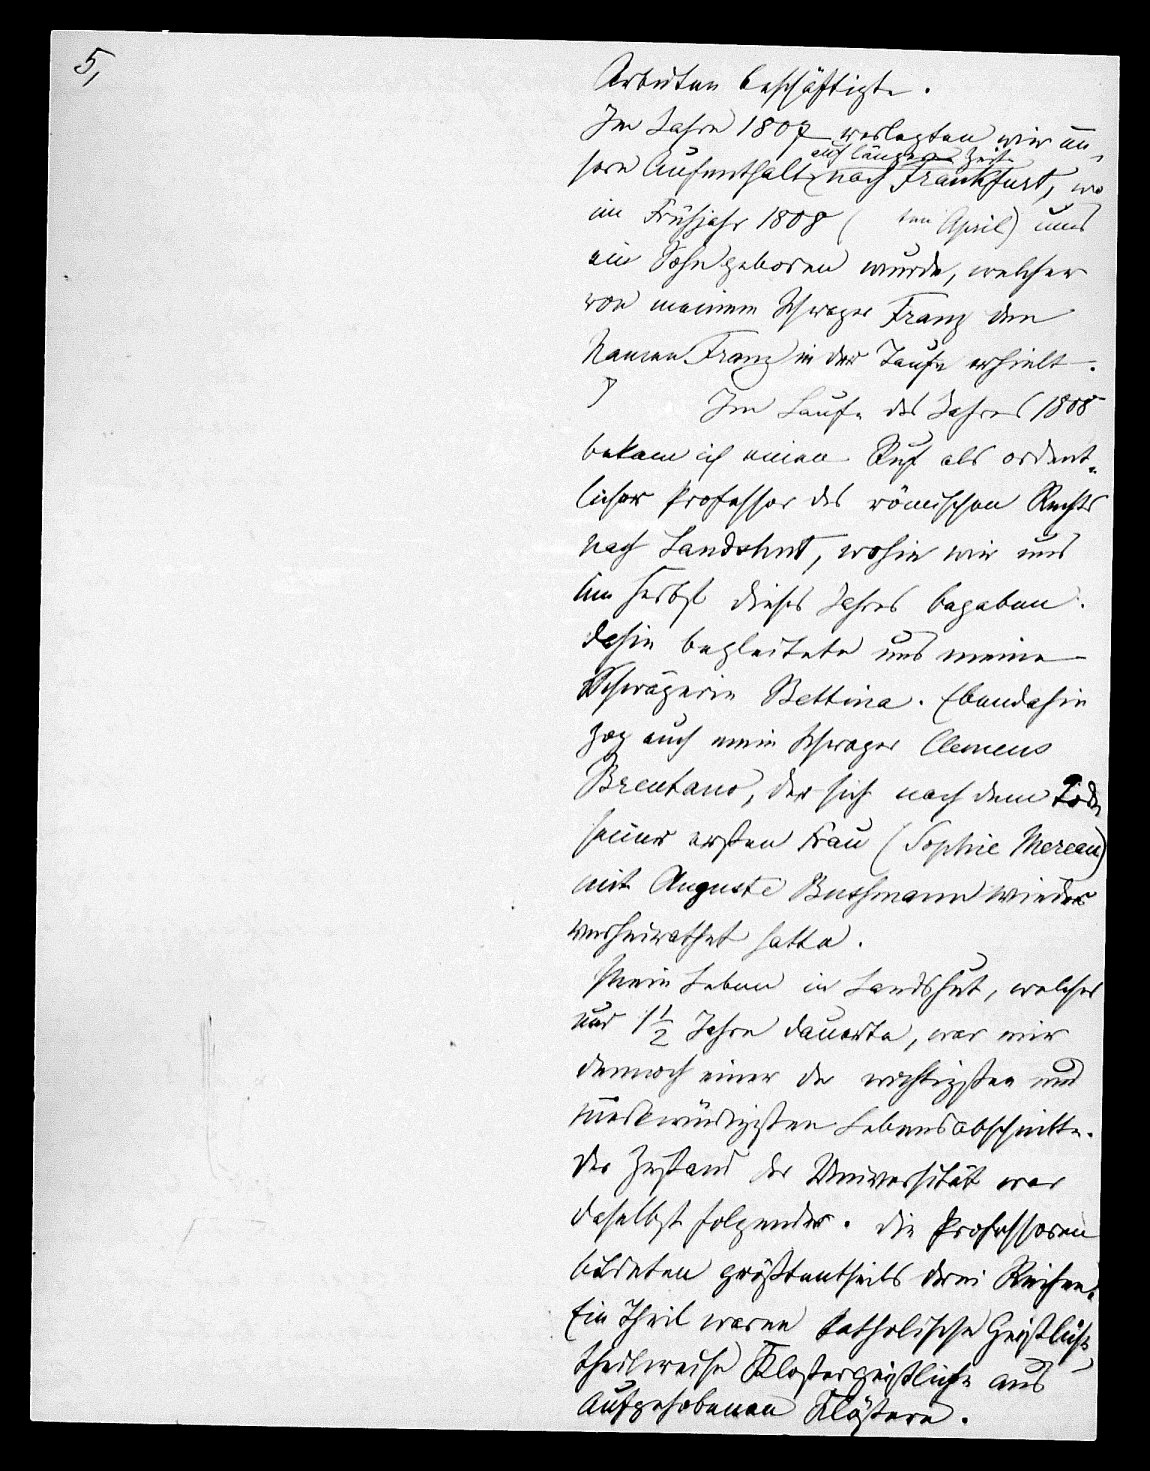 5,
Arbeiten beschäftigte.
Im Jahre 1807 verlegten wir un-
sern Aufenthalt auf längere Zeit nach Frankfurt, wo
im Frühjahr 1808 ( ten April) uns
ein Sohn geboren wurde, welcher
von meinem Schwager Franz den
Namen Franz in der Taufe erhielt.
Im Laufe des Jahres 1808
bekam ich einen Ruf als ordent-
licher Professor des römischen Rechts
nach Landshut, wohin wir uns
im Herbst dieses Jahres begaben.
Dahin begleitete uns meine
Schwägerin Bettina. Ebendahin
zog auch mein Schwager Clemens
Brentano, der sich nach dem Tode
seiner ersten Frau (Sophie Mereau)
mit Auguste Bushmann wieder
verheirathet hatte.
Mein Leben in Landshut, welches
nur 1 1/2 Jahre dauerte, war mir
dennoch einer der wichtigsten und
merkwürdigsten Lebensabschnitte.
Der Zustand der Universität war
daselbst folgender. Die Professoren
bildeten größtentheils drei Reihen.
Ein Theil waren katholische Geistliche
theilweise Klostergeistliche aus
aufgehobenen Klöstern.